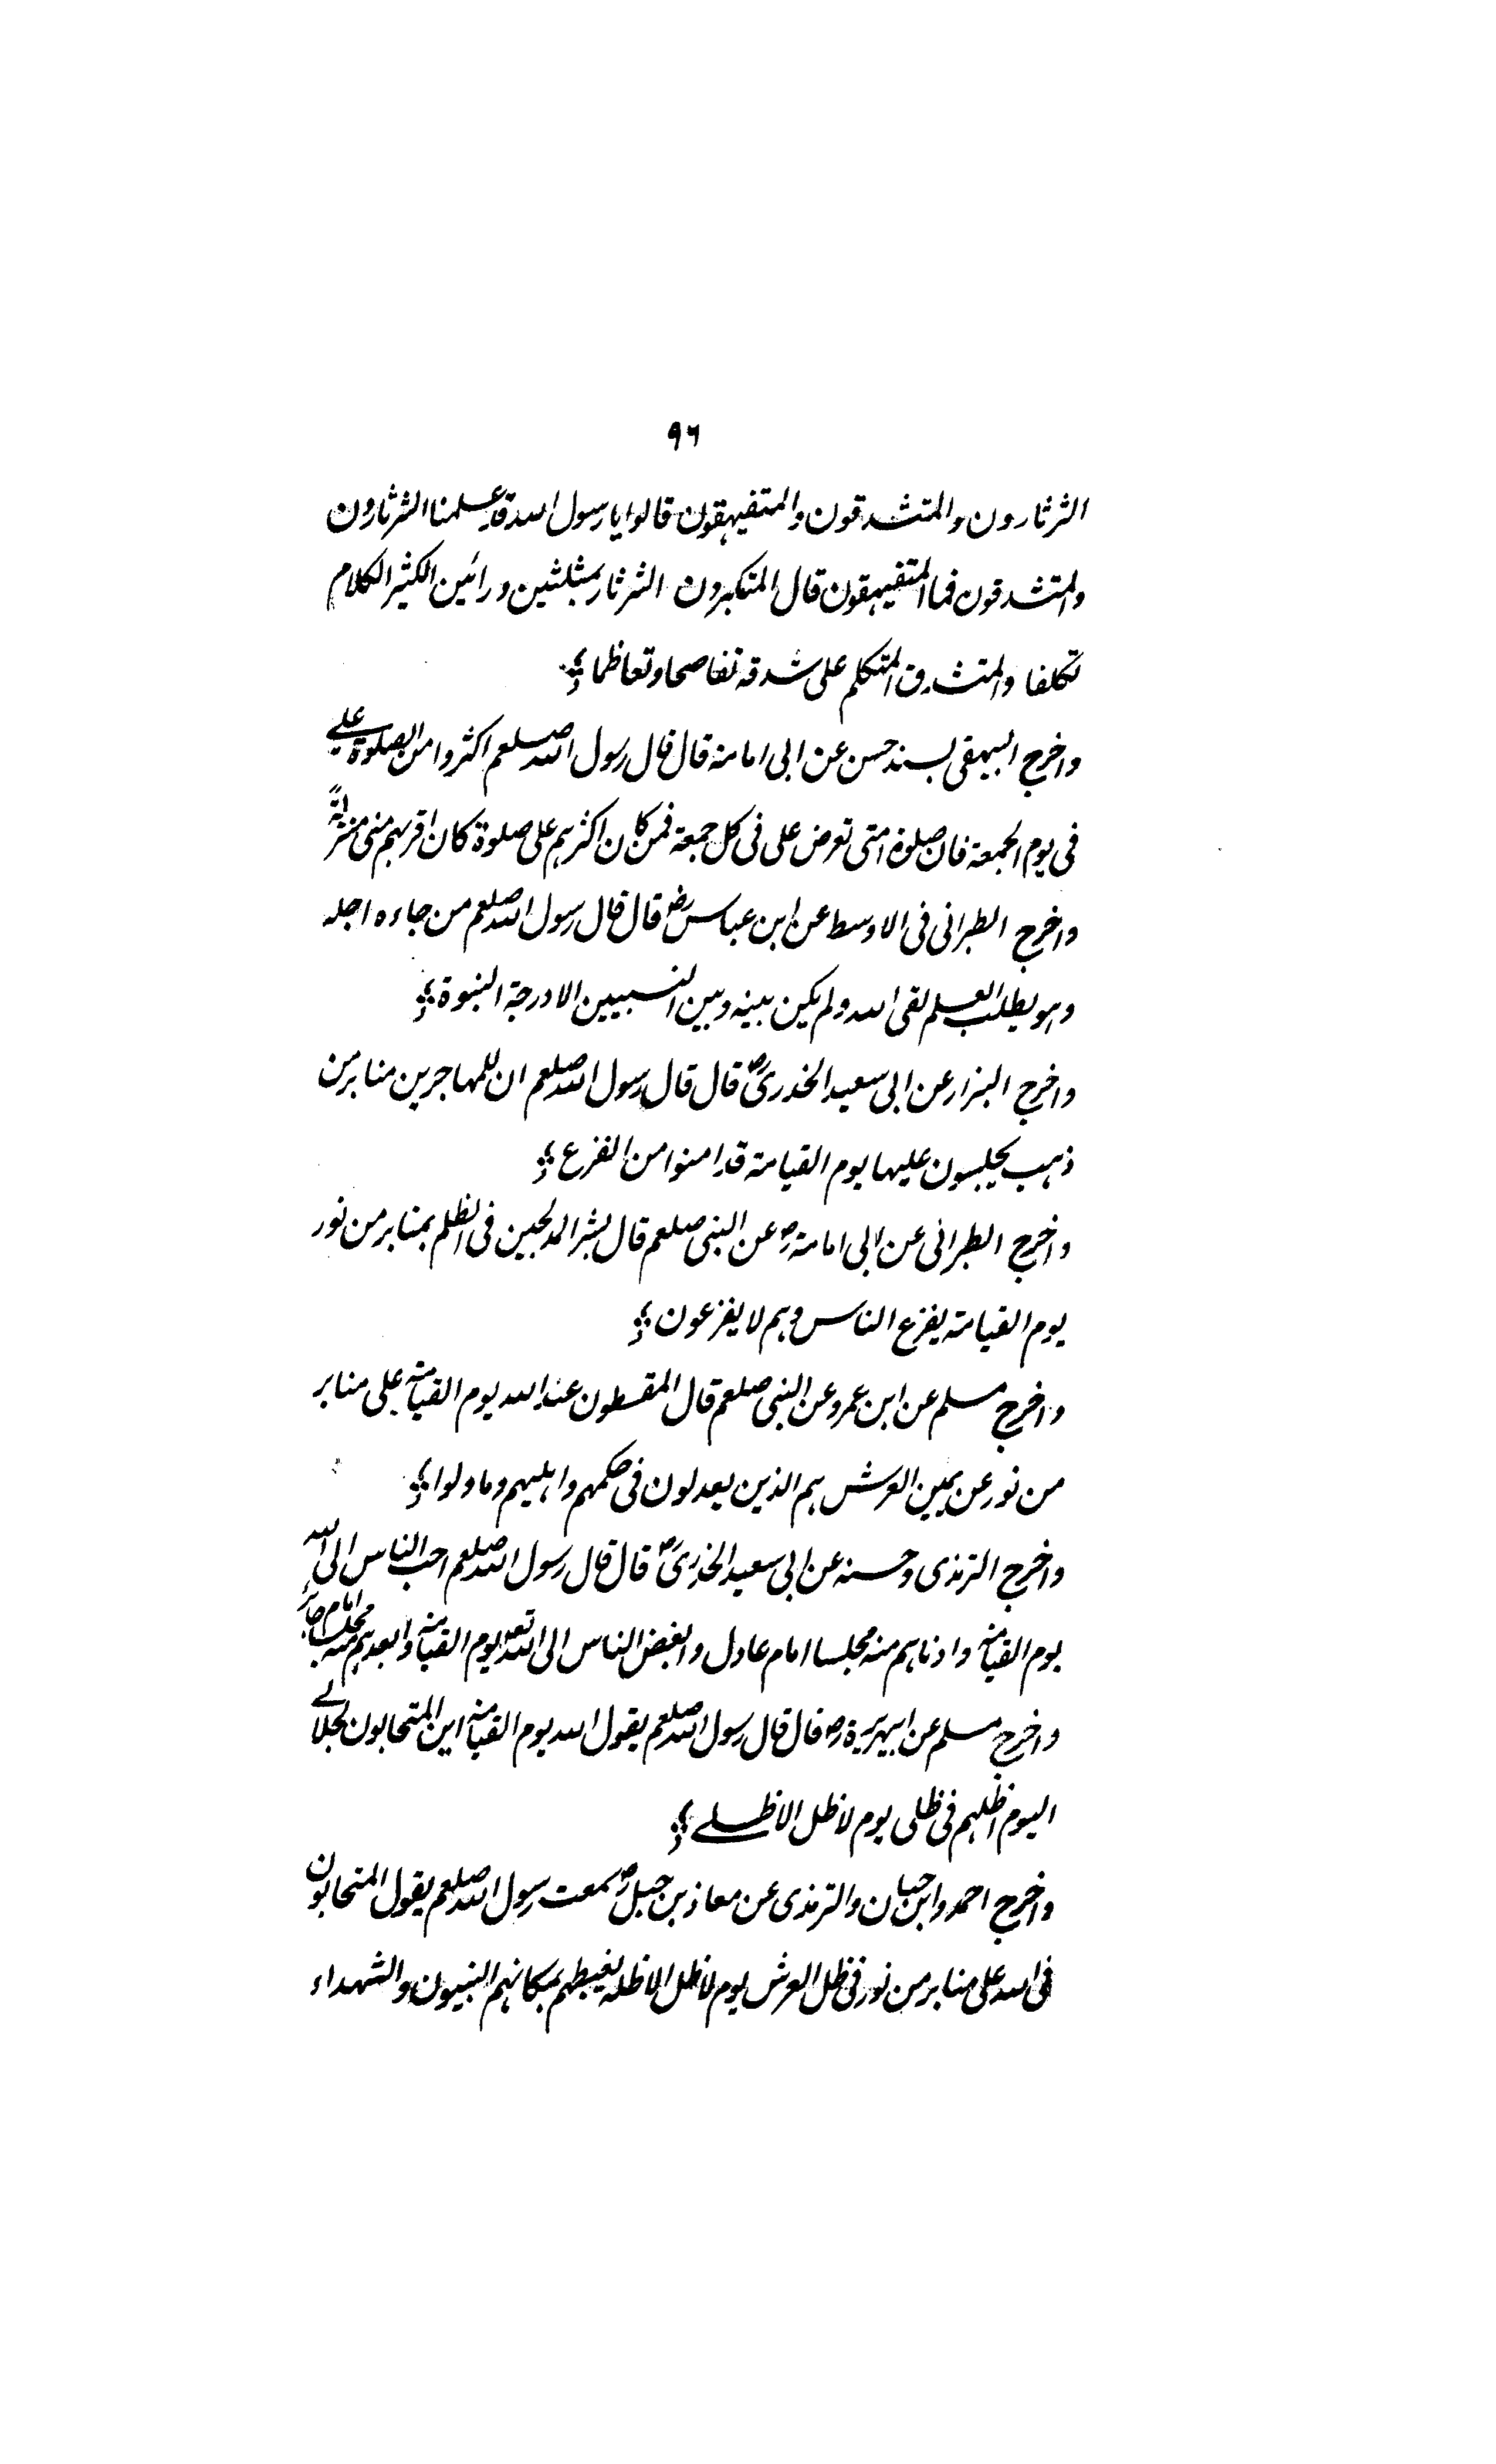 ٩٦
الثرثارون والمتشدقون والمتفيهقون قالوا يا رسول الله قد علمنا الثرثارون
والمتشدقون فما المتفيهقون قال المتكبرون الثرثار بمثلثين ورائين الكثير الكلام
تكلفا والمتشدق المتكلم على شدقه تفاصحا وتعاظما
واخرج البيهقى بسند حسن عن ابى امامة قال قال رسول الله صلعم اكثروا من الصلوة على
فى يوم الجمعة فان صلوة امتى تعرض على فى كل جمعة فمن كان اكثرهم على صلوة كان اقربهم منى منزلة
واخرج الطبرانى فى الاوسط عن ابن عباس رض قال قال رسول الله صلعم من جاءه اجله
وهو يطلب العلم لقى الله ولم يكن بينه وبين النبيين الا درجة النبوة
واخرج البزار عن ابى سعيد الخدرى رض قال قال رسول الله صلعم ان للمهاجرين منابر من
ذهب يجلسون عليها يوم القيامة قد امنوا من الفزع
واخرج الطبرانى عن ابى امامة رض عن النبى صلعم قال بشر المدلجين فى الظلم بمنابر من نور
يوم القيامة يفزع الناس وهم لا يفزعون
واخرج مسلم عن ابن عمرو عن النبى صلعم قال المقسطون عند الله يوم القيامة على منابر
من نور عن يمين العرش هم الذين يعدلون فى حكمهم واهليهم وما ولوا
واخرج الترمذى وحسنه عن ابى سعيد الخدرى رض قال قال رسول الله صلعم احب الناس الى الله
يوم القيامة وادناهم منه مجلسا امام عادل وابغض الناس الى الله تعالى يوم القيامة وابعدهم منه مجلسا امام جائر
واخرج مسلم عن ابيهريرة رض قال قال رسول الله صلعم يقول الله يوم القيامة اين المتحابون بجلالى
اليوم اظلهم فى ظلى يوم لا ظل الا ظلى
واخرج احمد وابن حبان والترمذى عن معاذ بن جبل رض سمعت رسول الله صلعم يقول المتحابون
فى الله على منابر من نور فى ظل العرش يوم لا ظل الا ظله يغبطهم بمكانهم النبيون والشهداء